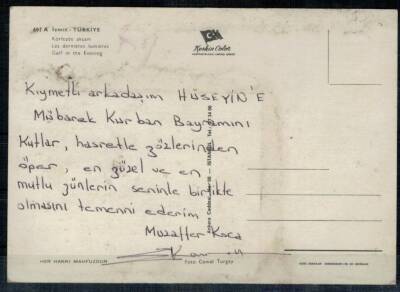 401 A İzmir - TÜRKİYE
Körfezde akşam
Les dernières lumières
Gulf in the Evening
Keskin Color
Kıymetli arkadaşım HÜSEYİN'E
Mübarek Kurban Bayramını
Kutlar, hasretle gözlerinden
öper, en güzel ve en
mutlu günlerin seninle birlikte
olmasını temenni ederim
Muzaffer Koca
HER HAKKI MAHFUZDUR
Foto Cemal Turgay
Ankara Caddesi